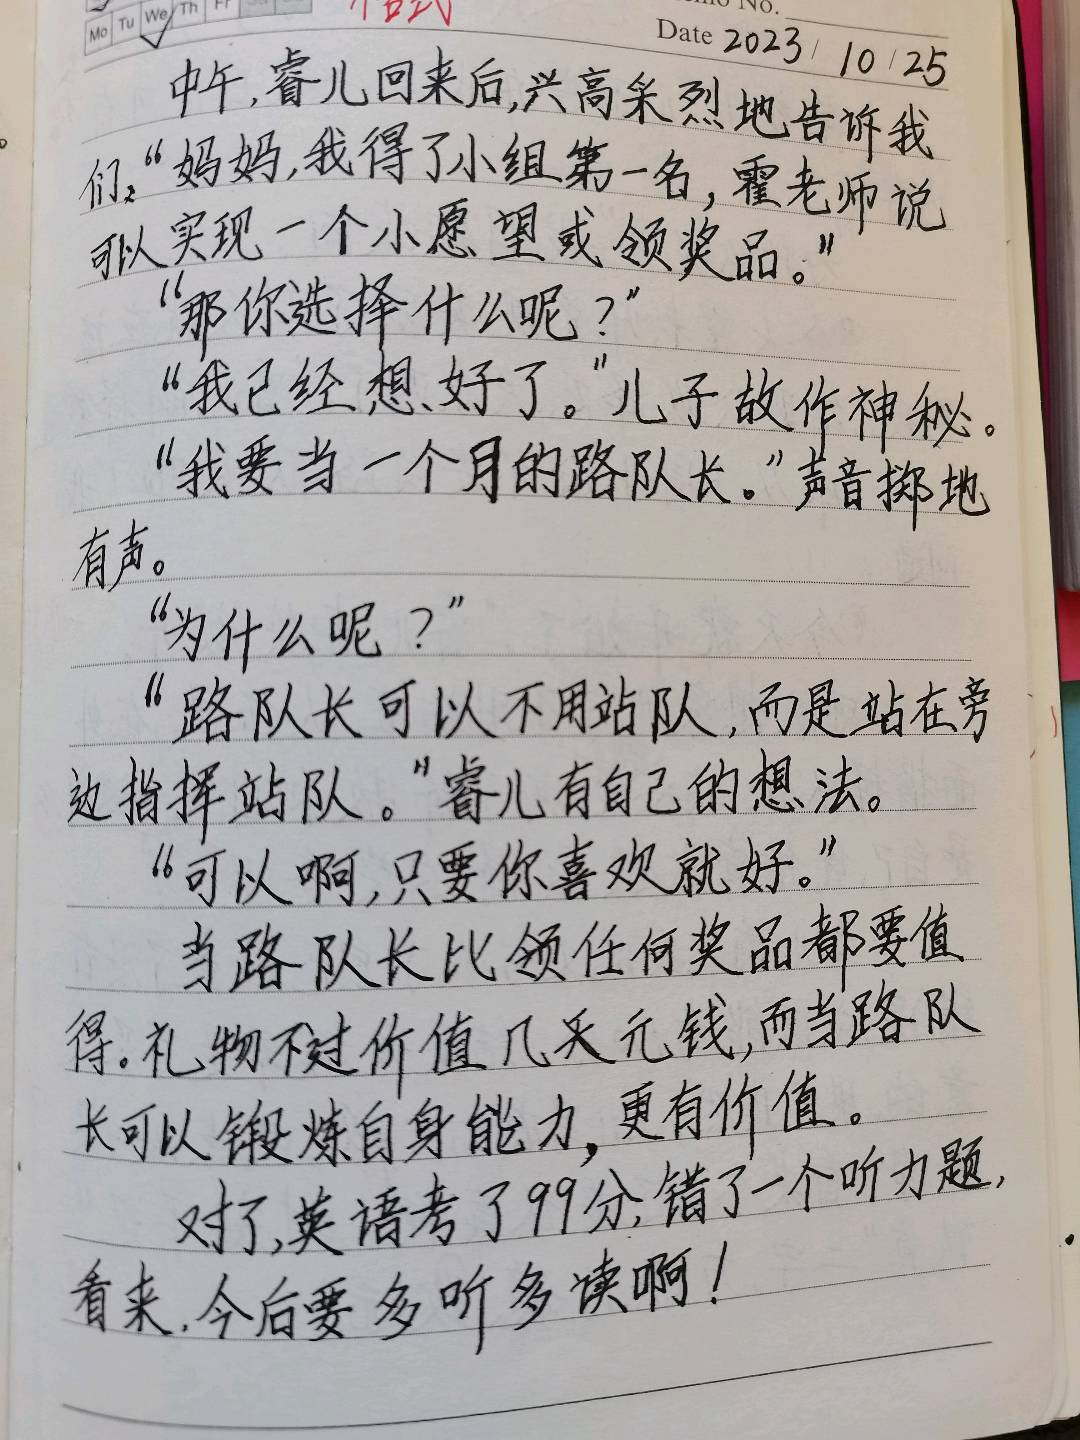 格式
Mo Tu We Th Fr
Memo No.
Date 2023/10/25
中午,睿儿回来后,兴高采烈地告诉我
们:“妈妈,我得了小组第一名,霍老师说
可以实现一个小愿望或领奖品。”
“那你选择什么呢?”
“我已经想好了。”儿子故作神秘。
“我要当一个月的路队长。”声音掷地
有声。
“为什么呢?”
“路队长可以不用站队,而是站在旁
边指挥站队。”睿儿有自己的想法。
“可以啊,只要你喜欢就好。”
当路队长比领任何奖品都要值
得。礼物不过价值几天元钱,而当路队
长可以锻炼自身能力,更有价值。
对了,英语考了99分,错了一个听力题,
看来,今后要多听多读啊!